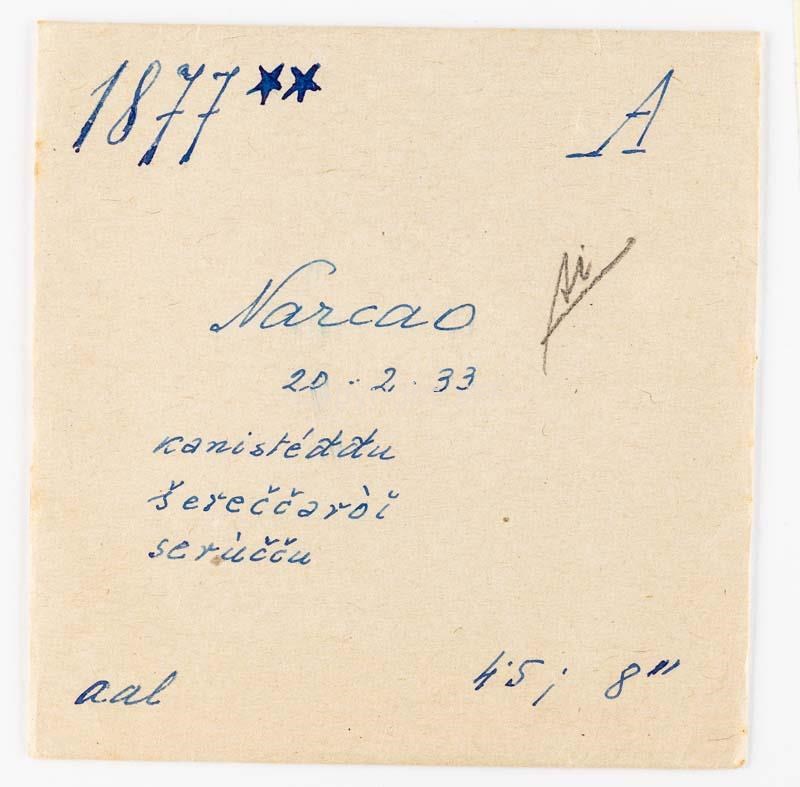 1877** A
Narcao
20.2.33
kanistéđđu
šereččaròĭ
serùčču
aal 45; 8'''